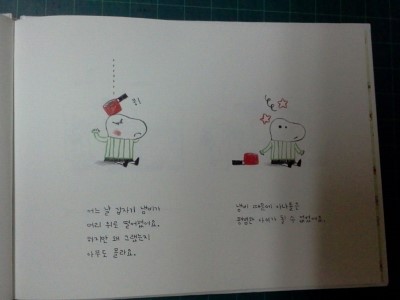 어느 날 갑자기 냄비가
머리 위로 떨어졌어요.
하지만 왜 그랬는지
아무도 몰라요.
냄비 때문에 아나톨은
평범한 아이가 될 수 없었어요.